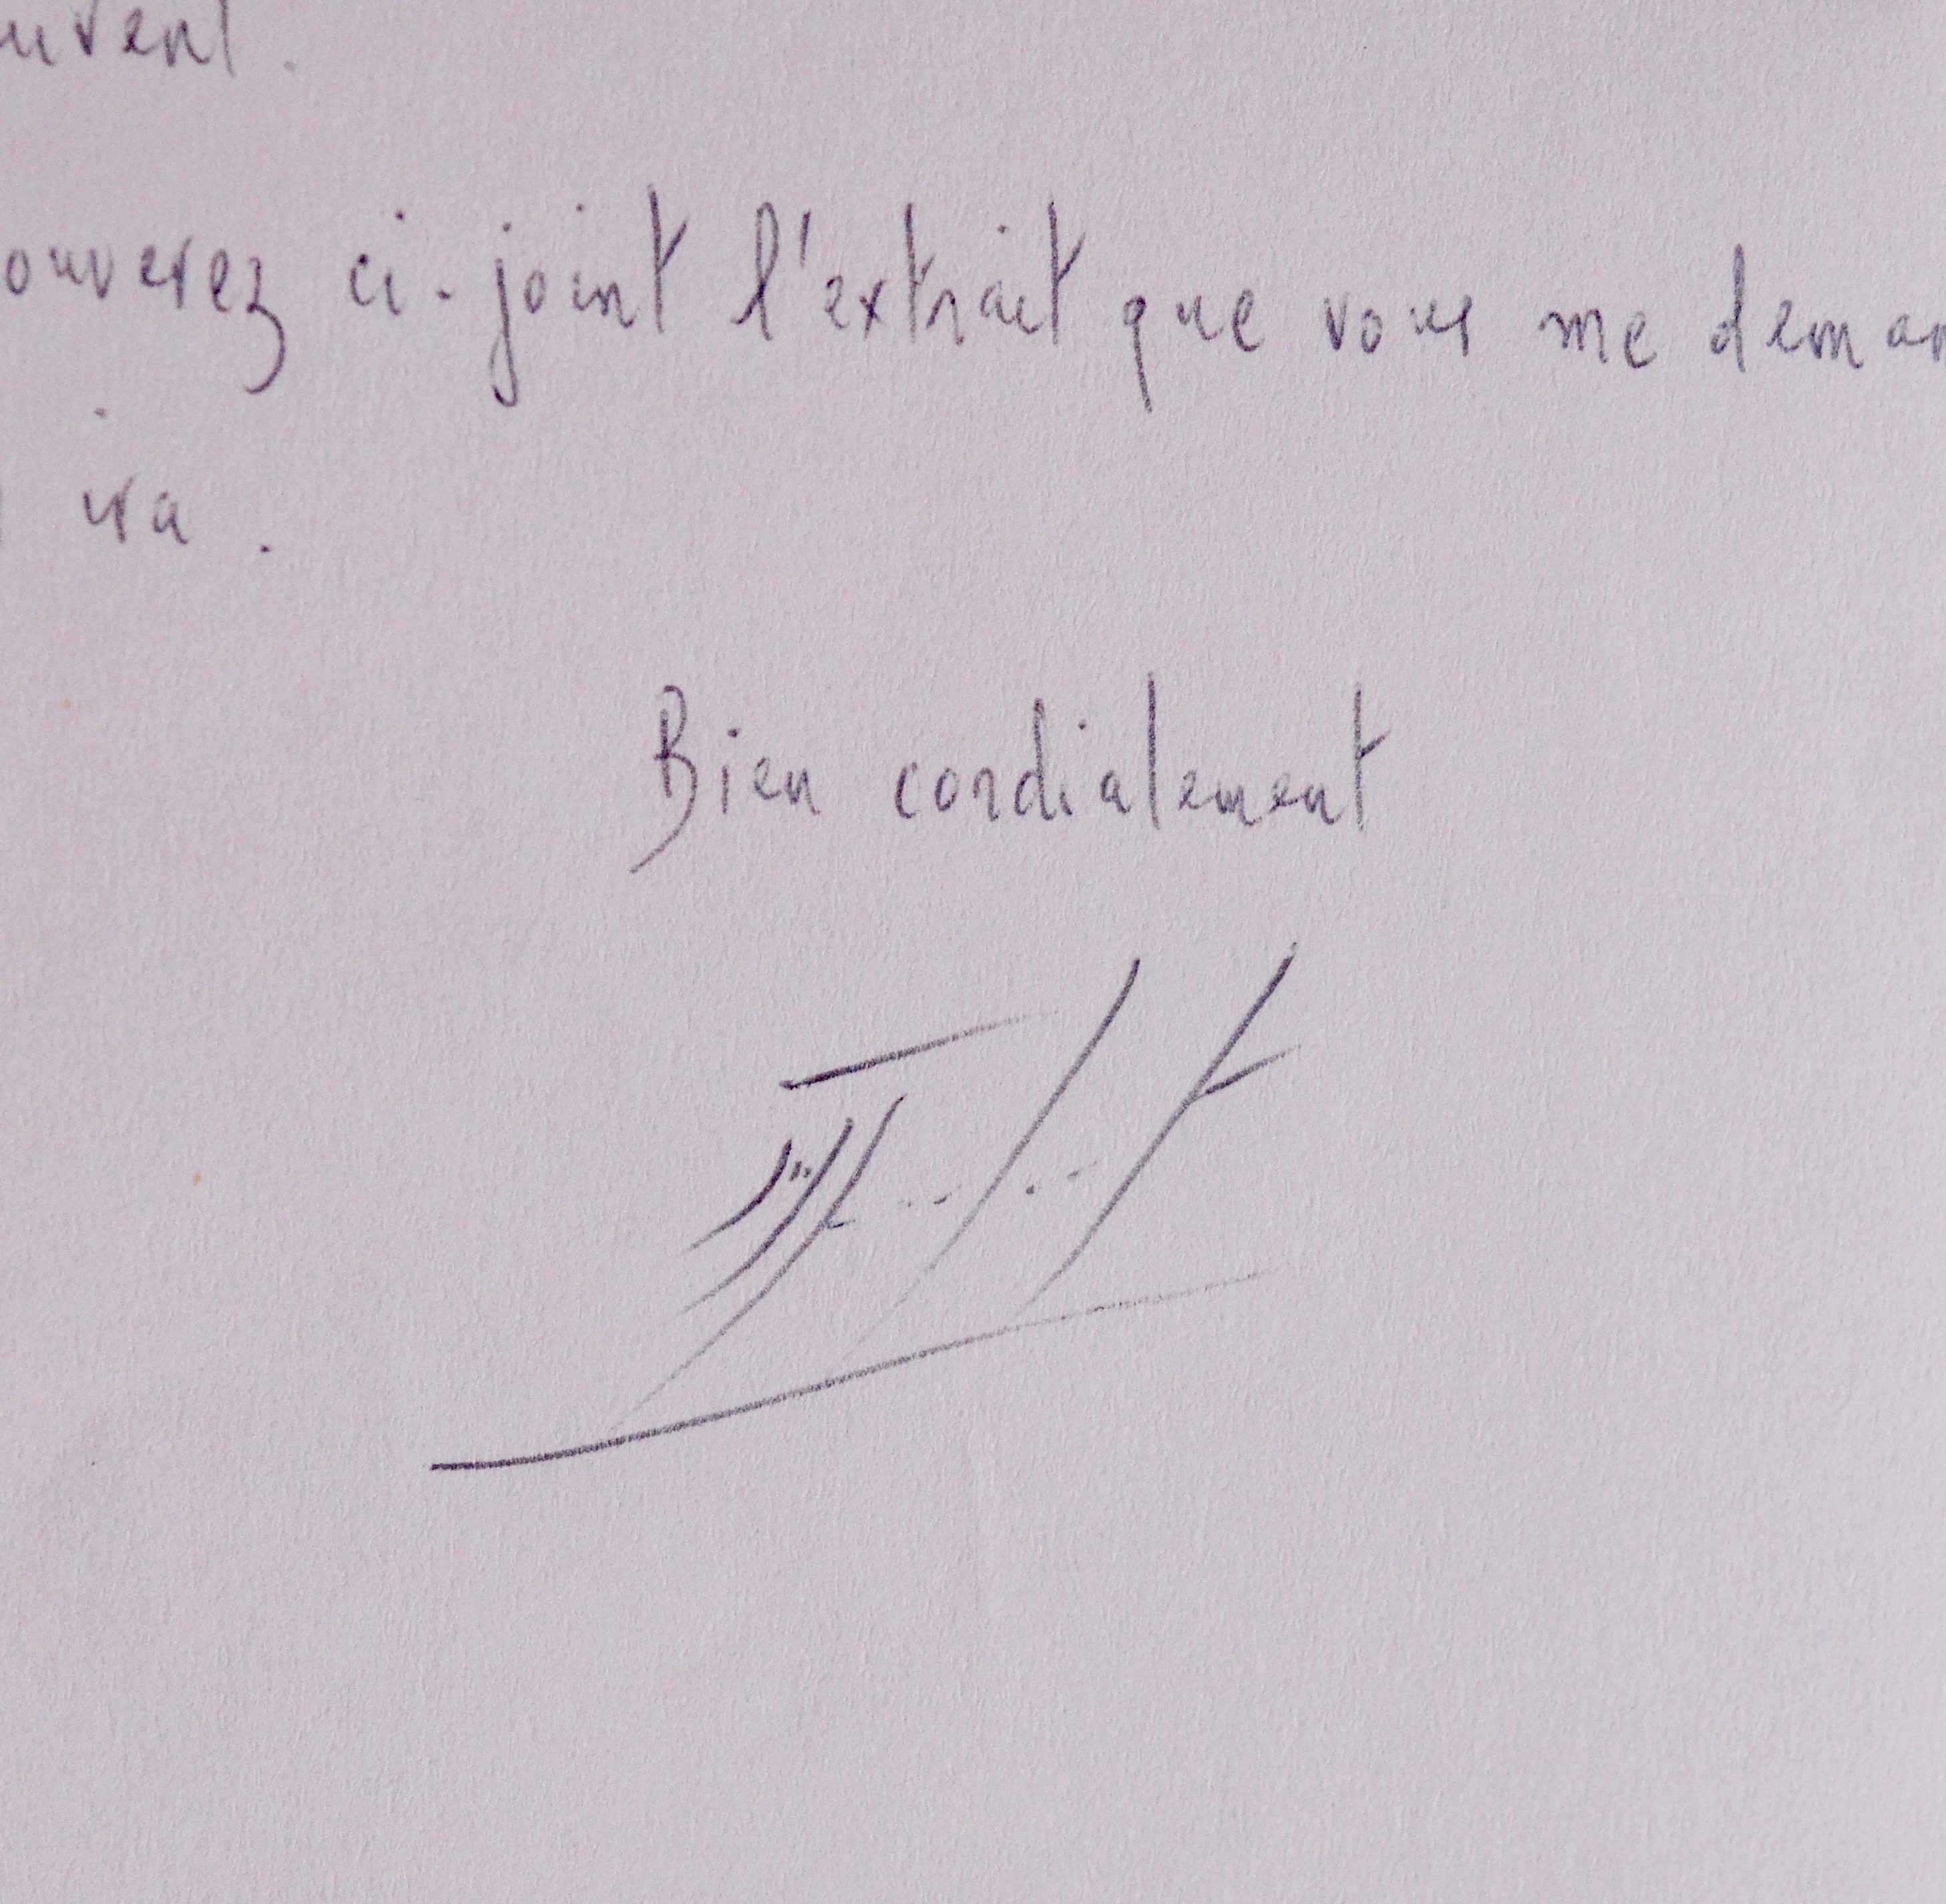 ouverez ci-joint l'extrait que vous me deman
ira.
Bien cordialement